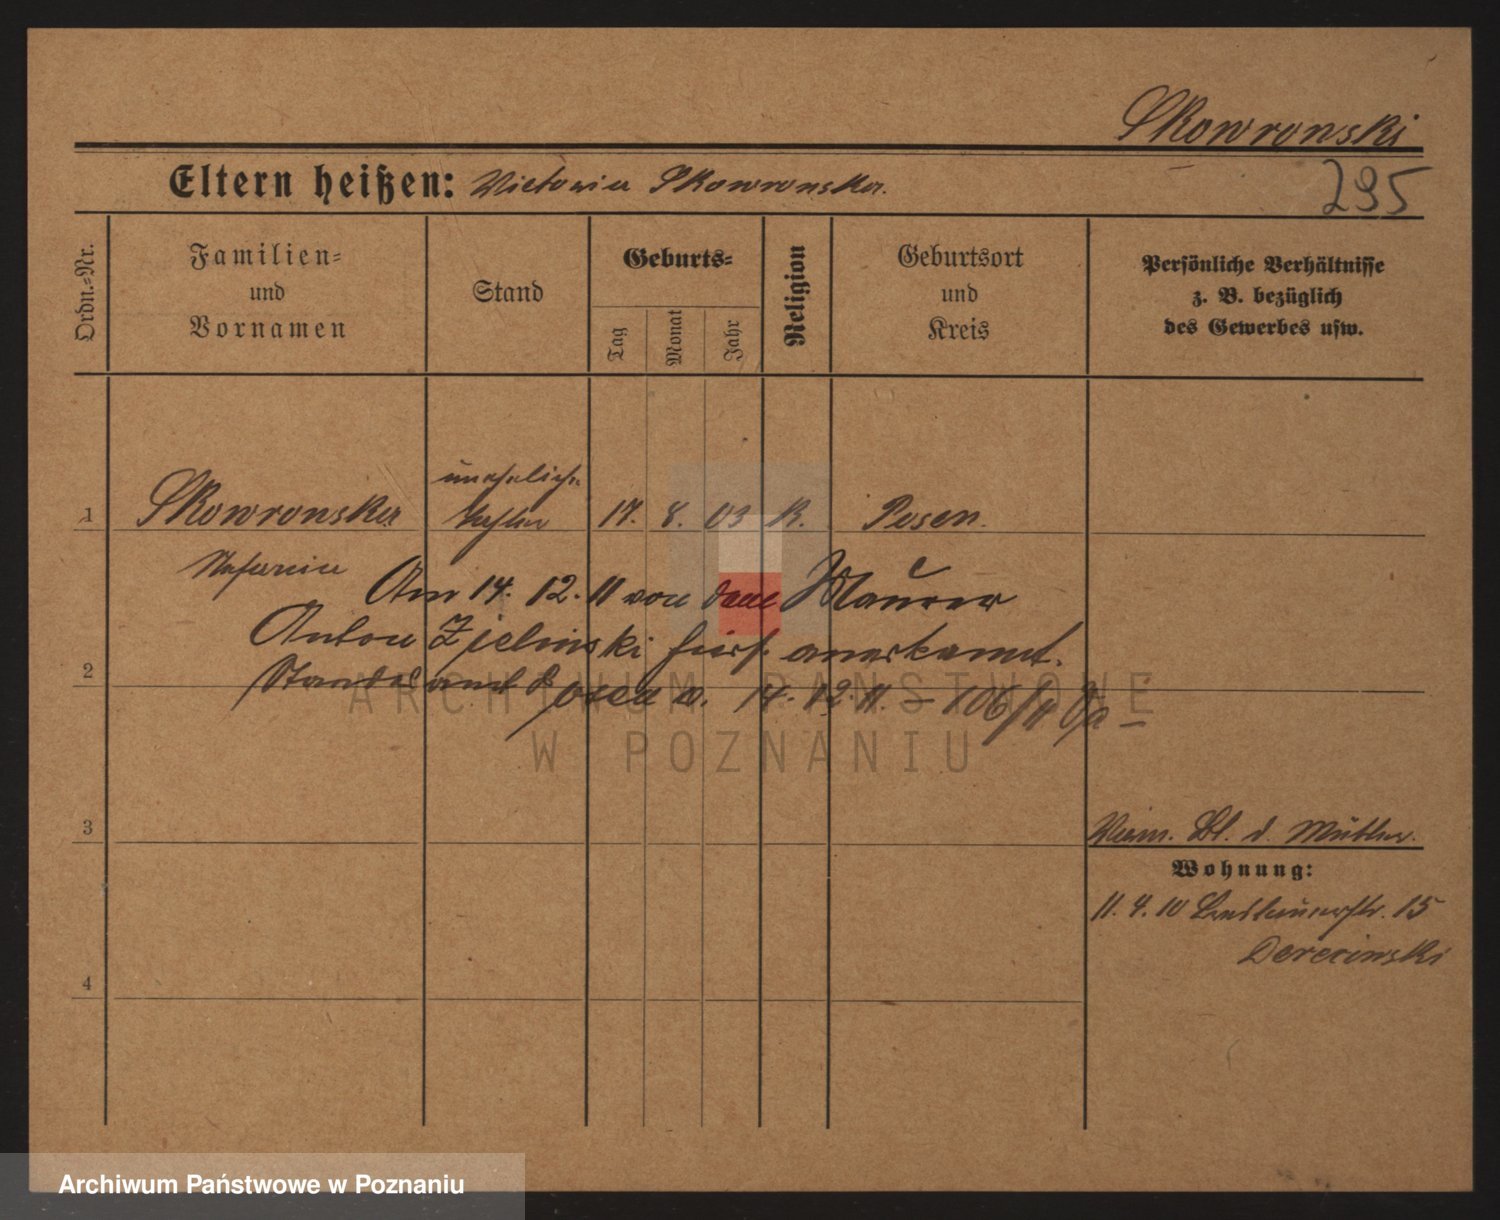 Skowronski
Eltern heißen: Victoria Skowronska.
295
Ordn.-Nr.
Familien-
und
Vornamen
Stand
Geburts-
Tag
Monat
Jahr
Religion
Geburtsort
und
Kreis
Persönliche Verhältnisse
z. B. bezüglich
des Gewerbes usw.
unehelich
1 Skowronska Tochter 17. 8. 03 K. Posen.
Am 14. 12. 11 von dem Maurer
Anton Zielinski hier anerkannt.
2
Standesamt Posen v. 14. 12. 11. – 106/11
3
d. Mutter.
Wohnung:
11. 4. 10 15
Derecinski
4
ARCHIWUM PAŃSTWOWE
W POZNANIU
Archiwum Państwowe w Poznaniu